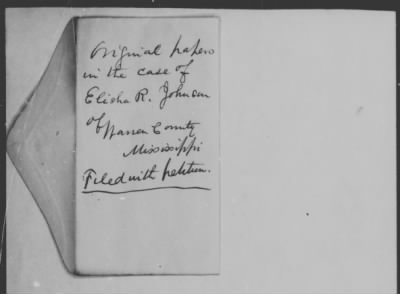 Original papers
in the case of
Elisha R. Johnson
of Warren County
Mississippi
Filed with petition.